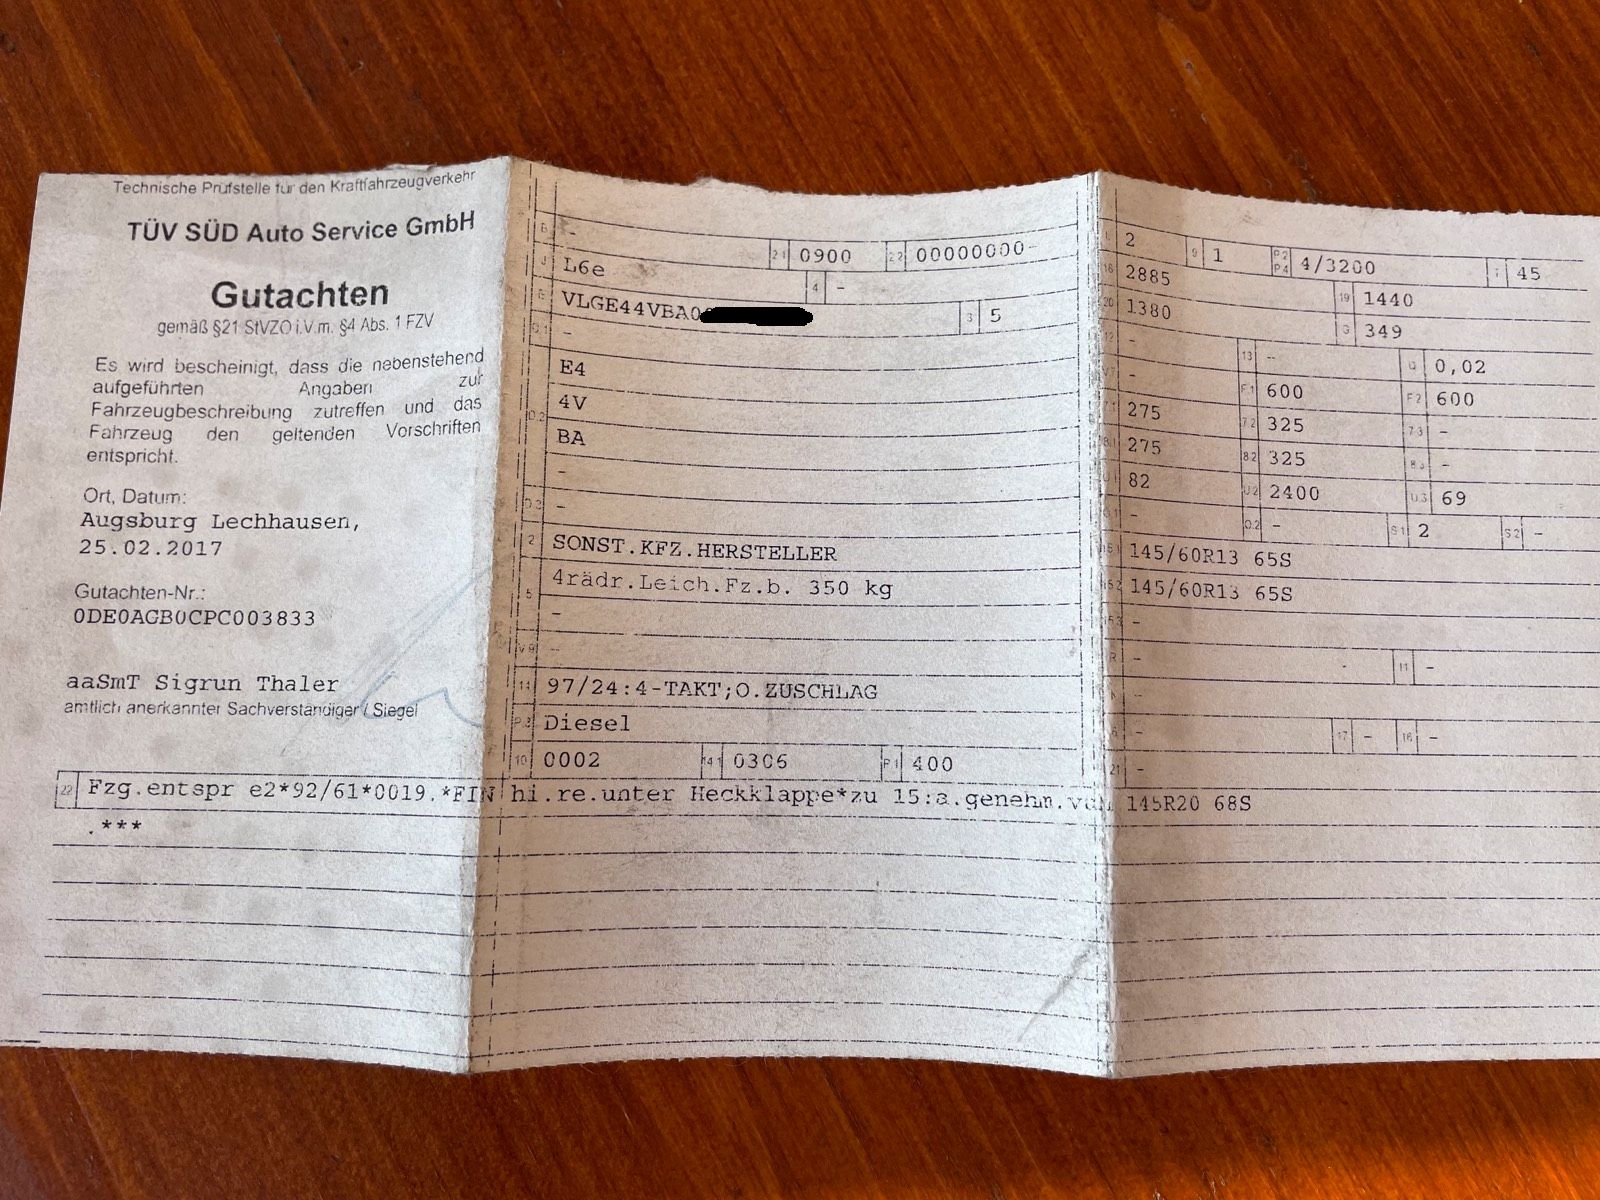 Technische Prüfstelle für den Kraftfahrzeugverkehr
TÜV SÜD Auto Service GmbH
Gutachten
gemäß §21 StVZO i.V.m. §4 Abs. 1 FZV
Es wird bescheinigt, dass die nebenstehend
aufgeführten Angaben zur
Fahrzeugbeschreibung zutreffen und das
Fahrzeug den geltenden Vorschriften
entspricht.
Ort, Datum:
Augsburg Lechhausen,
25.02.2017
Gutachten-Nr.:
0DE0AGB0CPC003833
aaSmT Sigrun Thaler
amtlich anerkannter Sachverständiger / Siegel
B - 2.1 0900 2.2 00000000-
J L6e 4 -
E VLGE44VBA0 3 5
D.1 -
E4
D.2 4V
BA
-
D.3 -
2 SONST.KFZ.HERSTELLER
5 4rädr.Leich.Fz.b. 350 kg
-
V.9 -
14 97/24:4-TAKT;O.ZUSCHLAG
P.3 Diesel
10 0002 14.1 0306 P.1 400
L 2 9 1 P.2 P.4 4/3200 T 45
18 2885 19 1440
20 1380 G 349
12 - 13 - Q 0,02
V.7 - F.1 600 F.2 600
7.1 275 7.2 325 7.3 -
8.1 275 8.2 325 8.3 -
U.1 82 U.2 2400 U.3 69
O.1 - O.2 - S.1 2 S.2 -
15.1 145/60R13 65S
15.2 145/60R13 65S
15.3 -
R - - 11 -
K -
6 - 17 - 16 -
21 -
22 Fzg.entspr e2*92/61*0019.*FIN hi.re.unter Heckklappe*zu 15:a.genehm.vuh 145R20 68S
.***